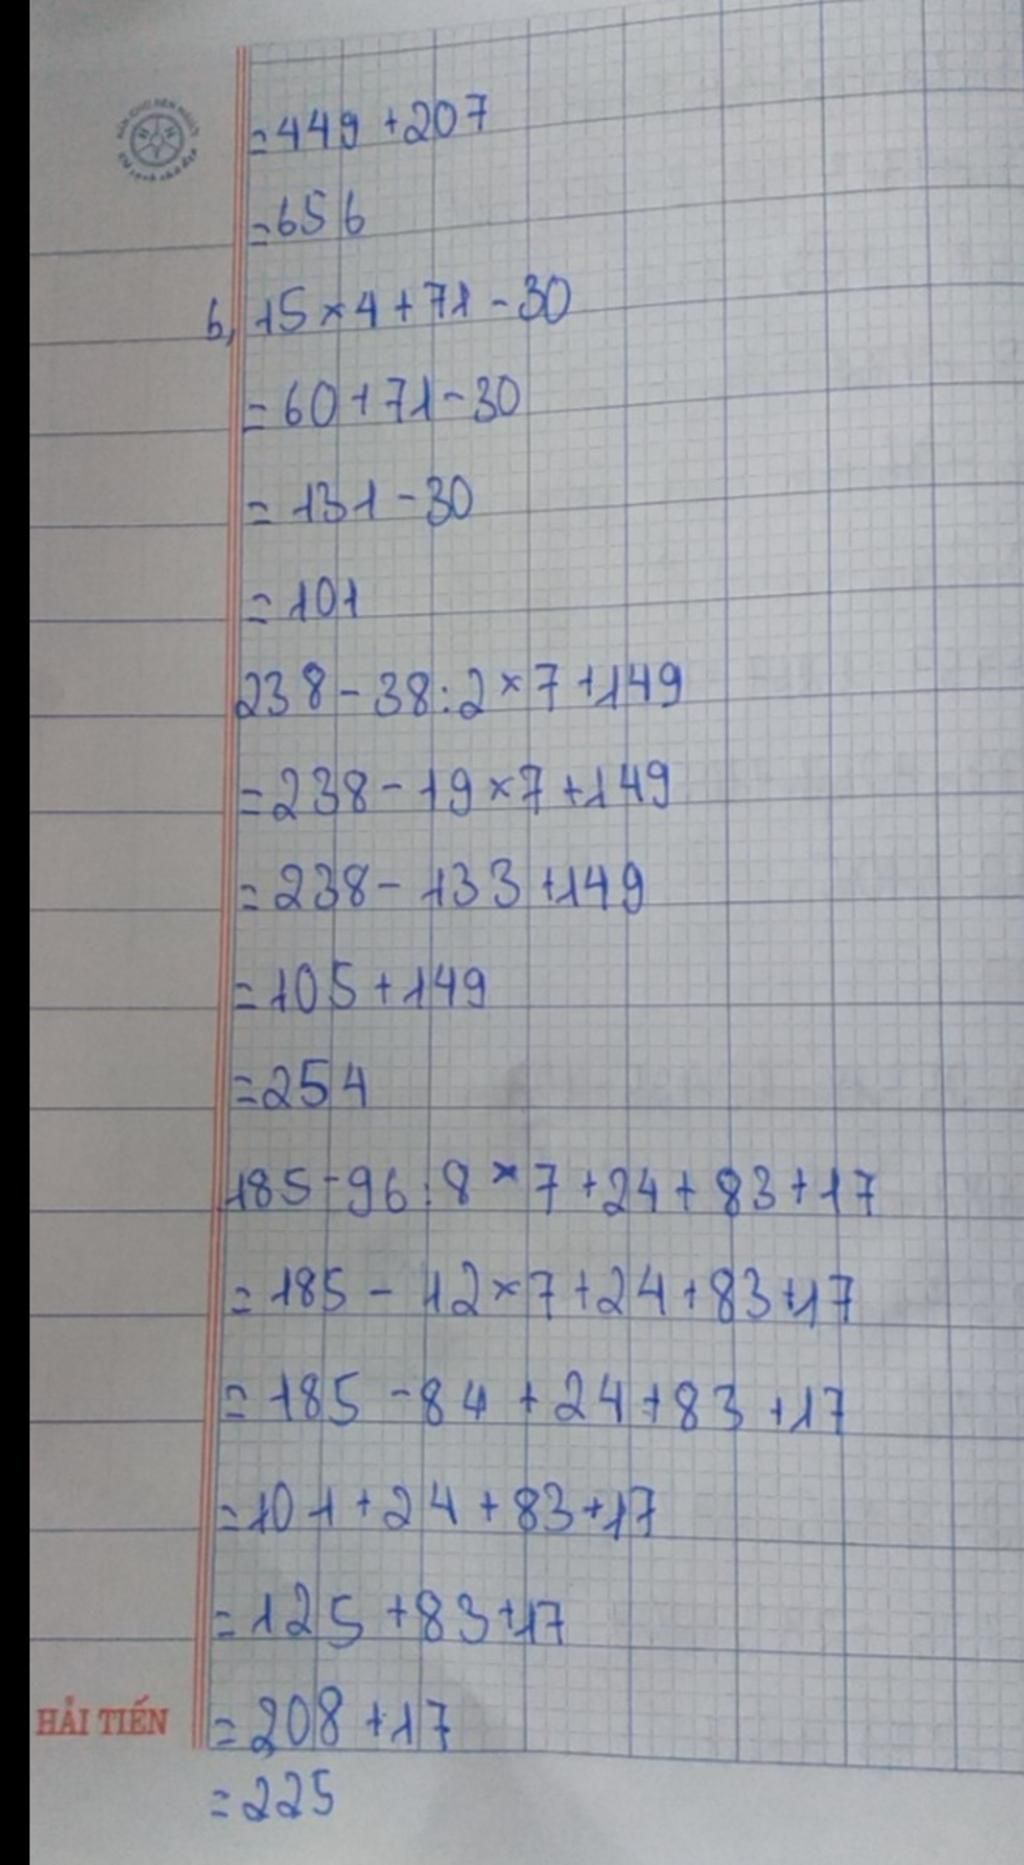 = 449 + 207
= 656
b, 15 × 4 + 71 - 30
= 60 + 71 - 30
= 131 - 30
= 101
238 - 38 : 2 × 7 + 149
= 238 - 19 × 7 + 149
= 238 - 133 + 149
= 105 + 149
= 254
185 - 96 : 8 × 7 + 24 + 83 + 17
= 185 - 12 × 7 + 24 + 83 + 17
= 185 - 84 + 24 + 83 + 17
= 101 + 24 + 83 + 17
= 125 + 83 + 17
HẢI TIẾN
= 208 + 17
= 225